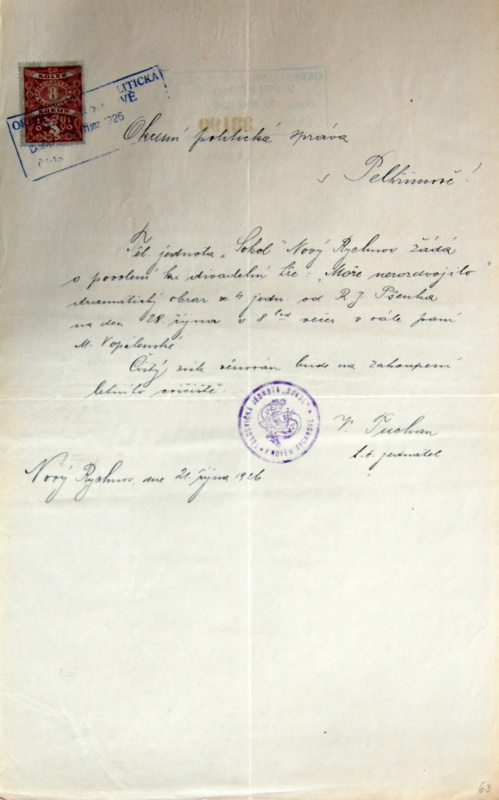 KOLEK
8
KORUN
8
POLITICKÁ
1926
Okresní politická správa
v Pelhřimově!
Těl. jednota „Sokol“ Nový Rychnov žádá
o povolení ku divadelní hře: „Moře nerozdvojíto“
dramatický obraz ve 4 jedn. od R. J.
na den 28. října v 8 hod večer v sále paní
M. Vopalenské.
Čistý zisk věnován bude na zakoupení
letního cvičiště.
TĚLOCVIČNÁ JEDNOTA „SOKOL“
V NOVÉM RYCHNOVĚ
V. Tuchan
t. č. jednatel
Nový Rychnov, dne 21. října 1926
63